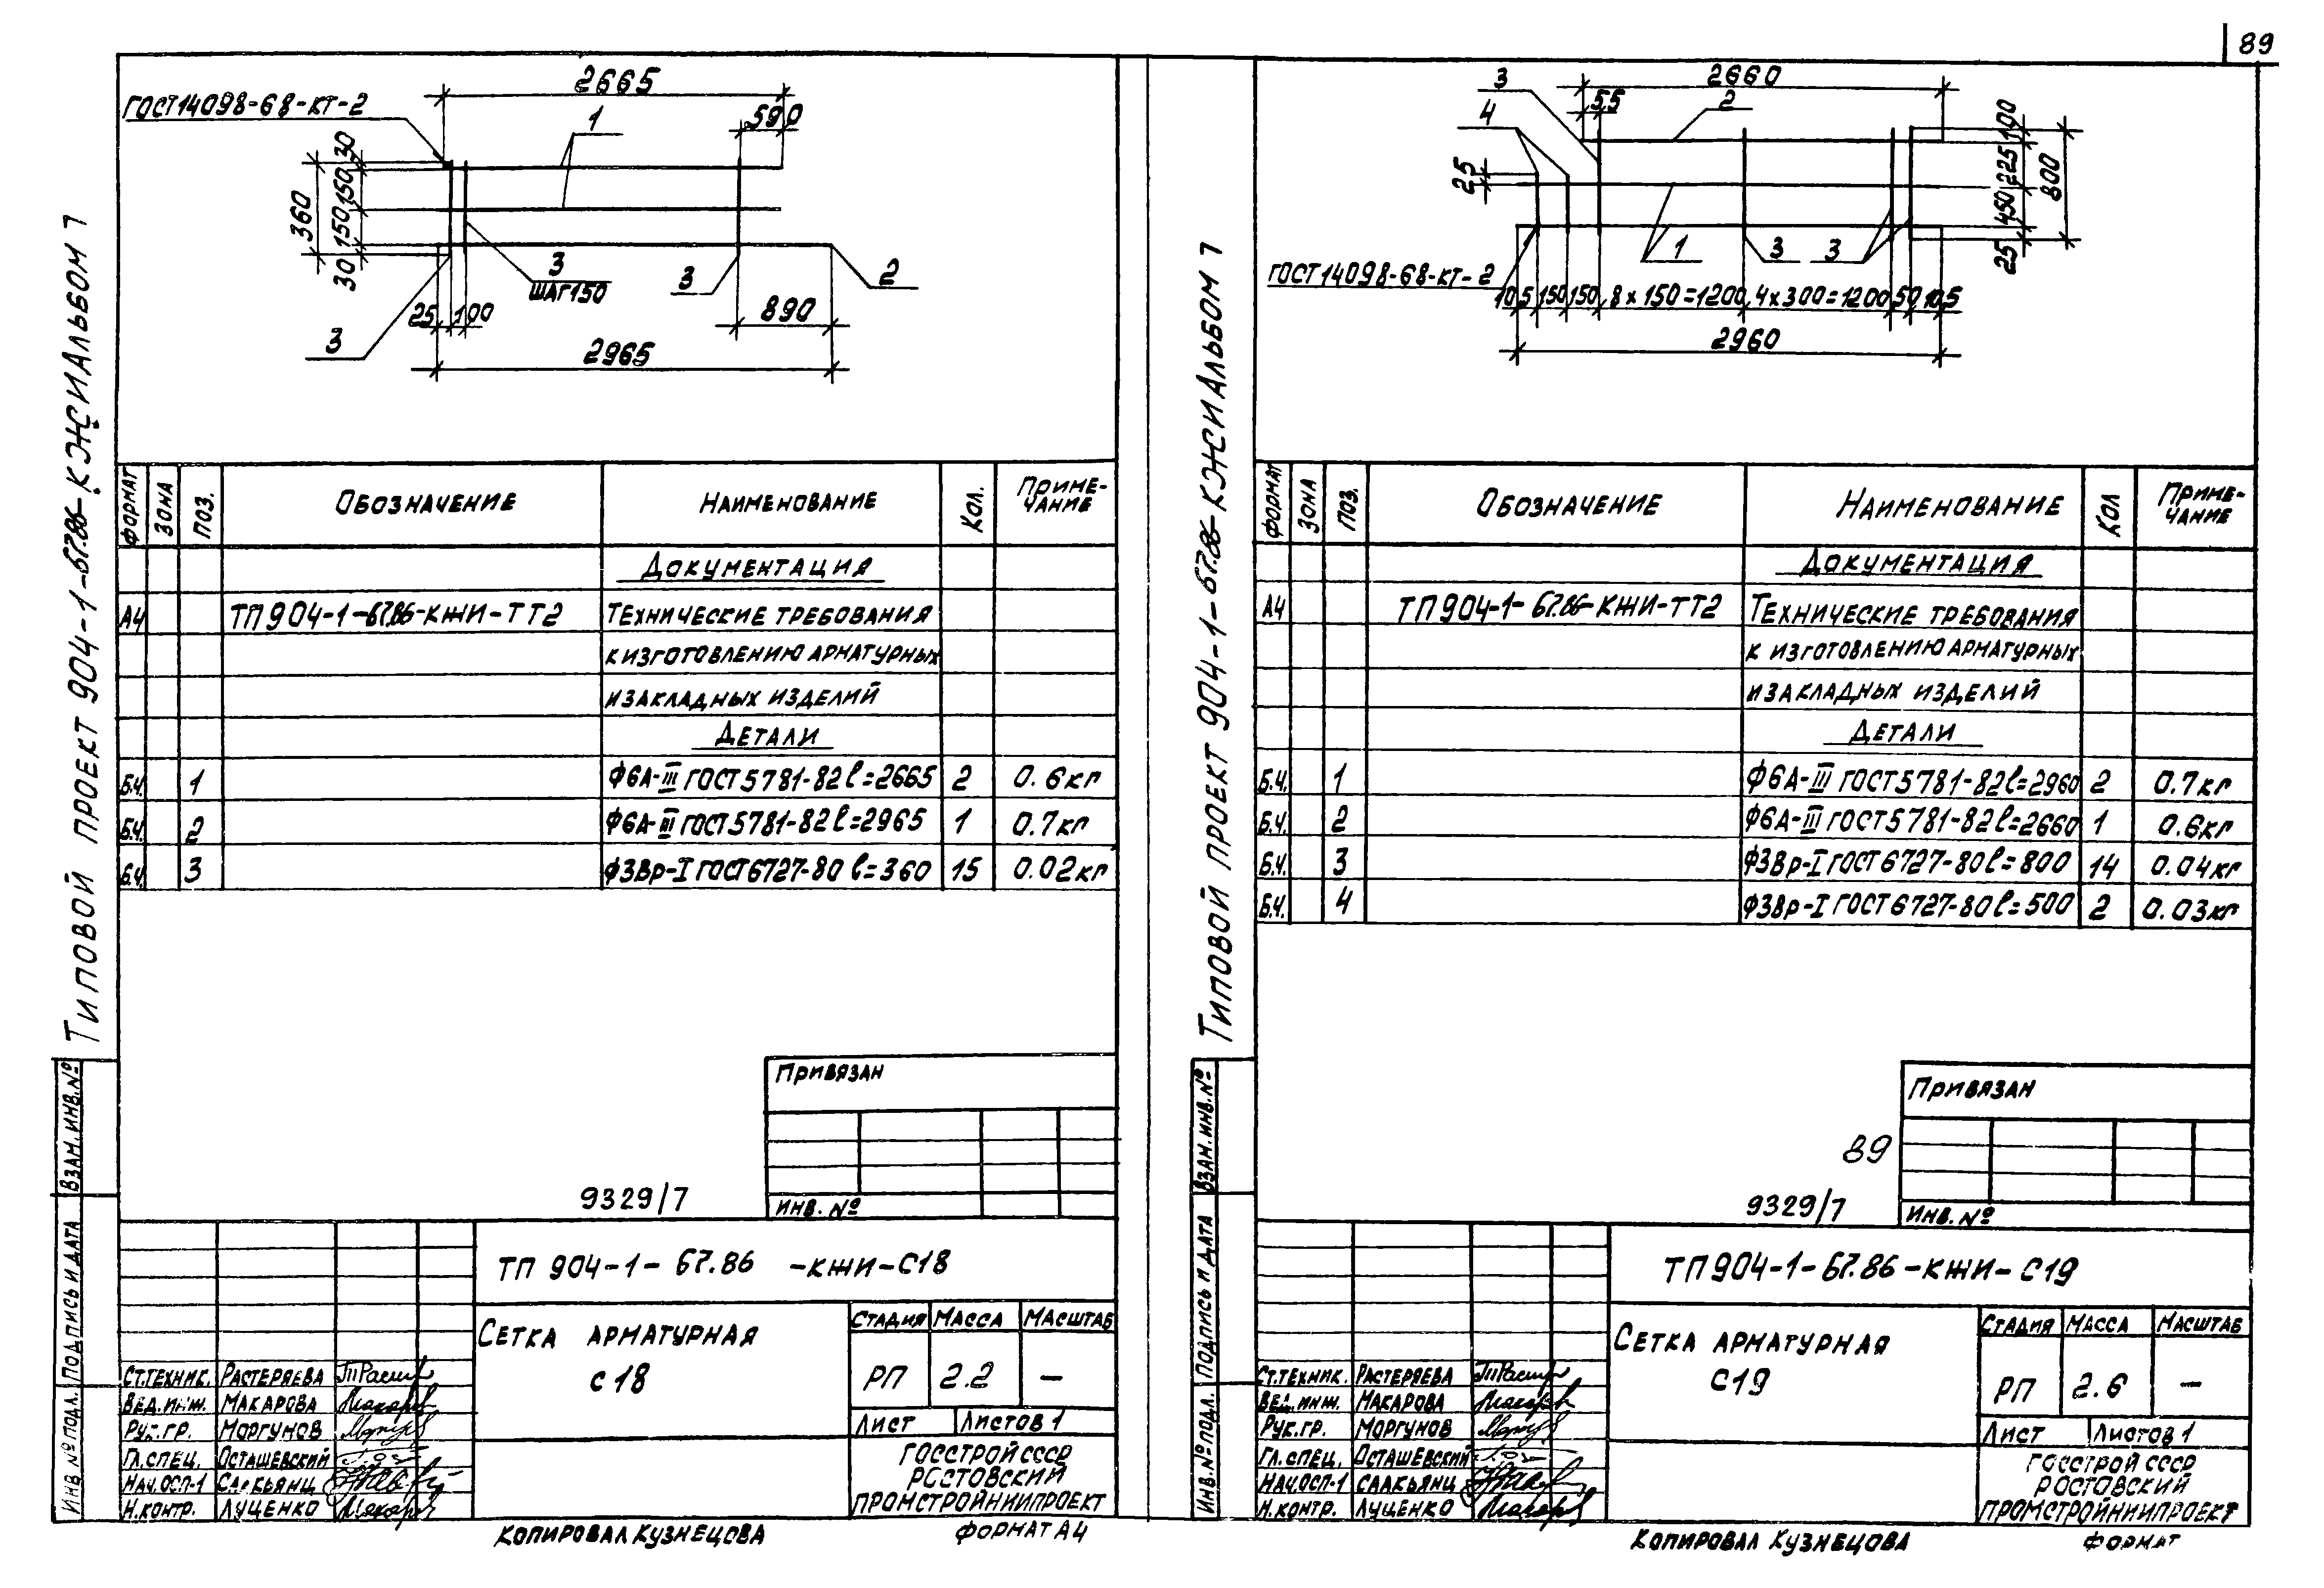 89
Типовой проект 904-1-67.86-КЖИ Альбом 7
2665
ГОСТ 14098-68-КТ-2
590
1
30
150
150
30
360
3
3
ШАГ 150
3
2
25
100
890
2965
ФОРМАТ ЗОНА ПОЗ. ОБОЗНАЧЕНИЕ НАИМЕНОВАНИЕ КОЛ. ПРИМЕ-
ЧАНИЕ
ДОКУМЕНТАЦИЯ
А4 ТП 904-1-67.86-КЖИ-ТТ2 ТЕХНИЧЕСКИЕ ТРЕБОВАНИЯ
К ИЗГОТОВЛЕНИЮ АРМАТУРНЫХ
И ЗАКЛАДНЫХ ИЗДЕЛИЙ
ДЕТАЛИ
Б.Ч. 1 Ф6А-III ГОСТ 5781-82 l=2665 2 0.6кг
Б.Ч. 2 Ф6А-III ГОСТ 5781-82 l=2965 1 0.7кг
Б.Ч. 3 Ф3Вр-I ГОСТ 6727-80 l=360 15 0.02кг
ПРИВЯЗАН
ИНВ. №
9329/7
ВЗАМ. ИНВ. №
ПОДПИСЬ И ДАТА
ИНВ. № ПОДЛ.
ТП 904-1-67.86 -КЖИ-С18
СЕТКА АРМАТУРНАЯ
С18
СТАДИЯ МАССА МАСШТАБ
РП 2.2 —
ЛИСТ ЛИСТОВ 1
ГОССТРОЙ СССР
РОСТОВСКИЙ
ПРОМСТРОЙНИИПРОЕКТ
СТ.ТЕХНИК. РАСТЕРЯЕВА
ВЕД.ИНЖ. МАКАРОВА
РУК.ГР. МОРГУНОВ
ГЛ.СПЕЦ. ОСТАШЕВСКИЙ
НАЧ.ОСП-1 СААКЬЯНЦ
Н.КОНТР. ЛУЦЕНКО
КОПИРОВАЛ КУЗНЕЦОВА ФОРМАТ А4
Типовой проект 904-1-67.86-КЖИ Альбом 7
2660
3
55
2
4
25
100
225
450
25
800
1
3
3
ГОСТ 14098-68-КТ-2
105 150 150 8х150=1200 4х300=1200 50 105
2960
ФОРМАТ ЗОНА ПОЗ. ОБОЗНАЧЕНИЕ НАИМЕНОВАНИЕ КОЛ ПРИМЕ-
ЧАНИЕ
ДОКУМЕНТАЦИЯ
А4 ТП 904-1-67.86-КЖИ-ТТ2 ТЕХНИЧЕСКИЕ ТРЕБОВАНИЯ
К ИЗГОТОВЛЕНИЮ АРМАТУРНЫХ
И ЗАКЛАДНЫХ ИЗДЕЛИЙ
ДЕТАЛИ
Б.Ч. 1 Ф6А-III ГОСТ 5781-82 l=2960 2 0.7кг
Б.Ч. 2 Ф6А-III ГОСТ 5781-82 l=2660 1 0.6кг
Б.Ч. 3 Ф3Вр-I ГОСТ 6727-80 l=800 14 0.04кг
Б.Ч. 4 Ф3Вр-I ГОСТ 6727-80 l=500 2 0.03кг
ПРИВЯЗАН
89
ИНВ. №
9329/7
ВЗАМ. ИНВ. №
ПОДПИСЬ И ДАТА
ИНВ. № ПОДЛ.
ТП 904-1-67.86-КЖИ-С19
СЕТКА АРМАТУРНАЯ
С19
СТАДИЯ МАССА МАСШТАБ
РП 2.6 —
ЛИСТ ЛИСТОВ 1
ГОССТРОЙ СССР
РОСТОВСКИЙ
ПРОМСТРОЙНИИПРОЕКТ
СТ.ТЕХНИК. РАСТЕРЯЕВА
ВЕД.ИНЖ. МАКАРОВА
РУК.ГР. МОРГУНОВ
ГЛ.СПЕЦ. ОСТАШЕВСКИЙ
НАЧ.ОСП-1 СААКЬЯНЦ
Н.КОНТР. ЛУЦЕНКО
КОПИРОВАЛ КУЗНЕЦОВА ФОРМАТ